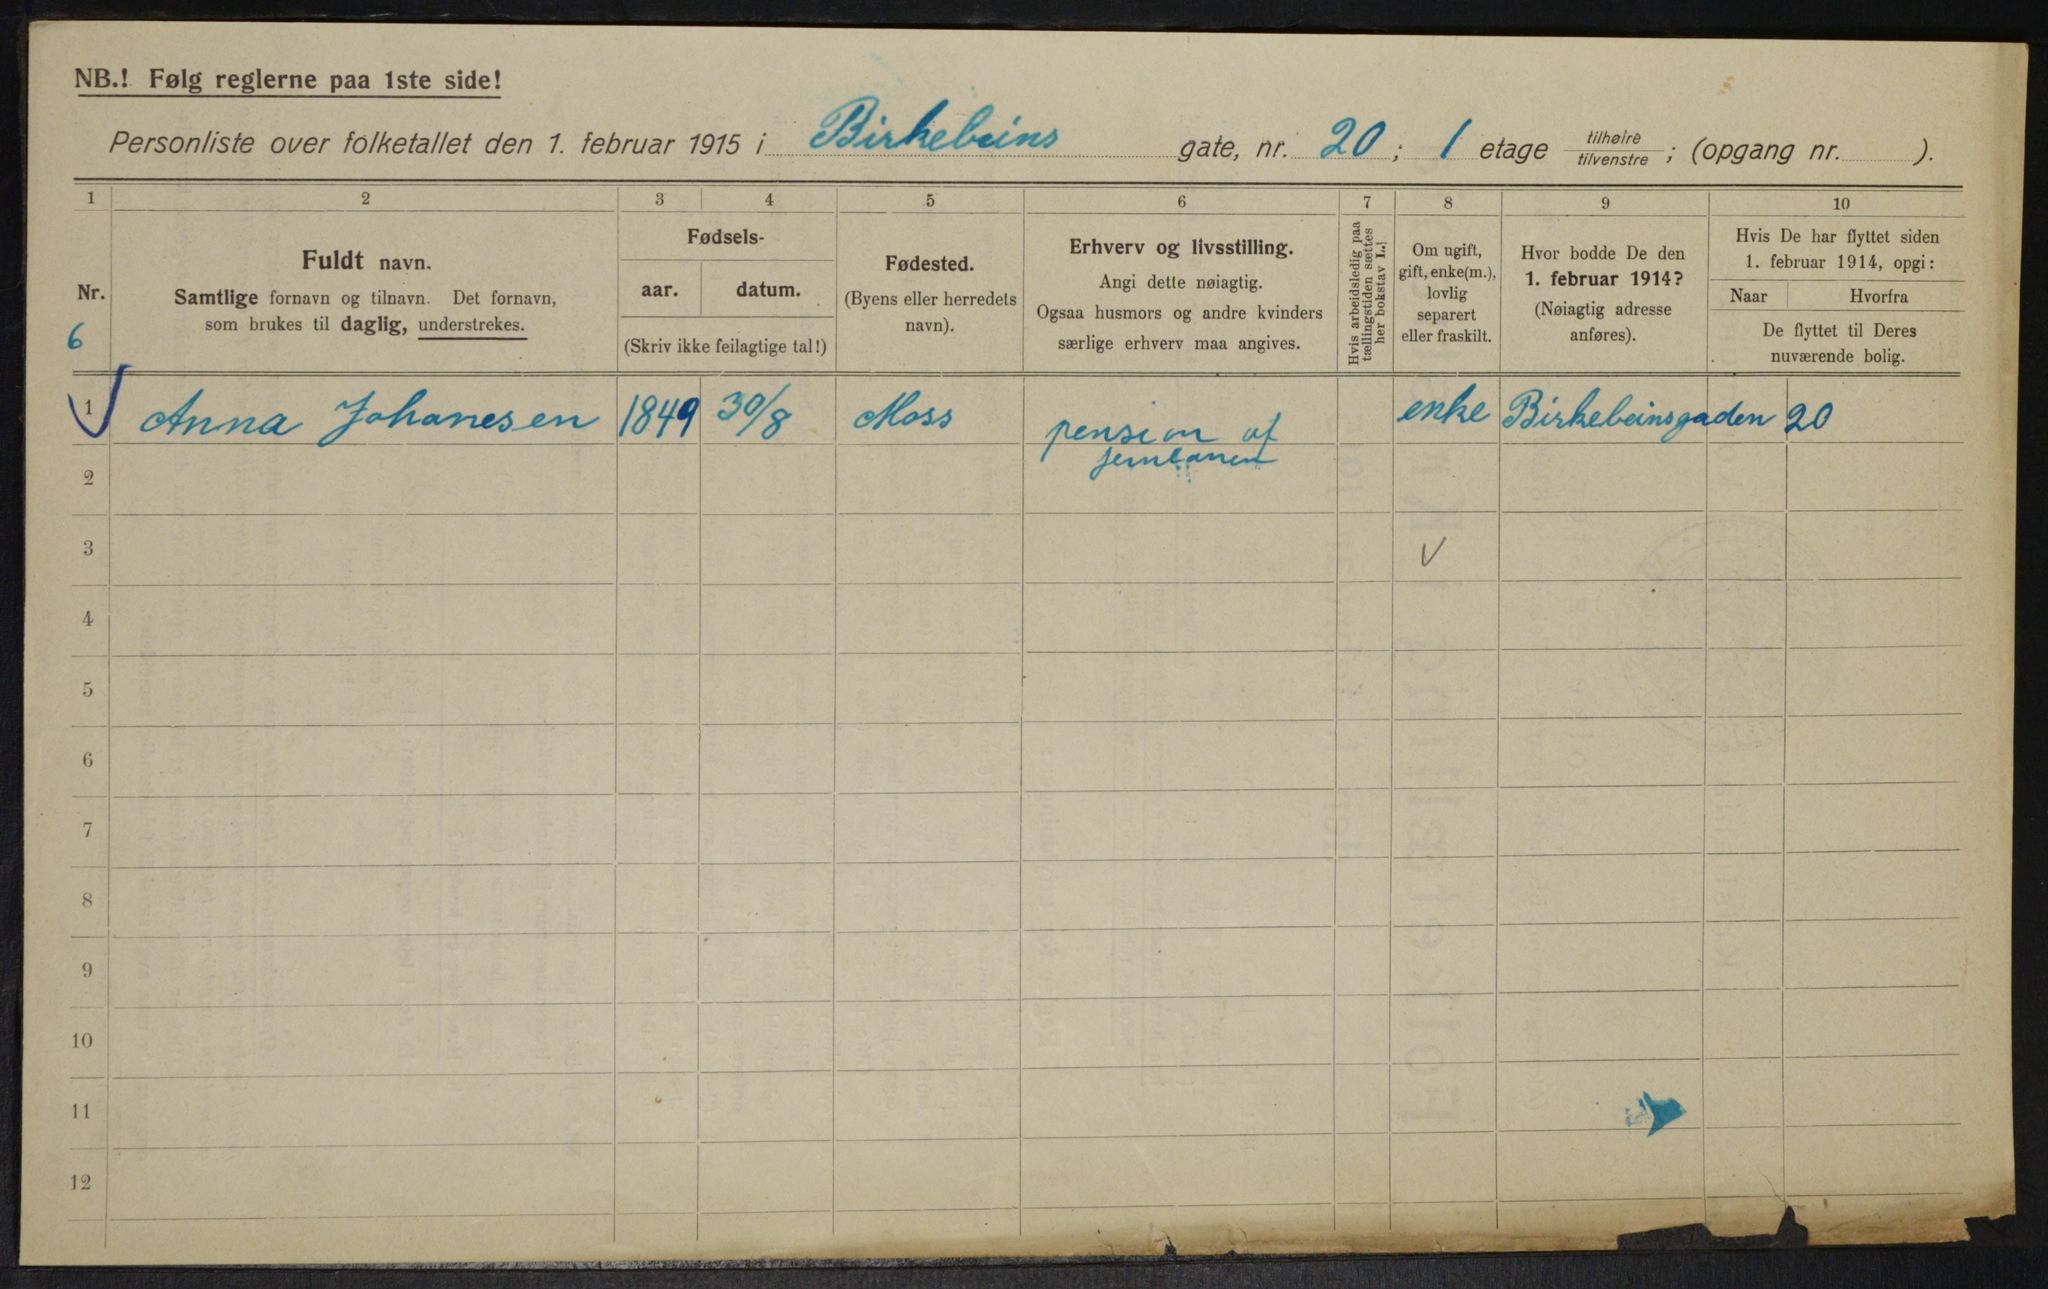 NB.! Følg reglerne paa 1ste side!
Personliste over folketallet den 1. februar 1915 i Birkebeins gate, nr. 20; 1 etage tilhøire tilvenstre; (opgang nr. ).
1 2 3 4 5 6 7 8 9 10
Nr.
6
Fuldt navn.
Samtlige fornavn og tilnavn. Det fornavn,
som brukes til daglig, understrekes.
Fødsels-
aar. datum.
(Skriv ikke feilagtige tal!)
Fødested.
(Byens eller herredets
navn).
Erhverv og livsstilling.
Angi dette nøiagtig.
Ogsaa husmors og andre kvinders
særlige erhverv maa angives.
Hvis arbeidsledig paa
tællingstiden sættes
her bokstav L.
Om ugift,
gift, enke(m.),
lovlig
separert
eller fraskilt.
Hvor bodde De den
1. februar 1914?
(Nøiagtig adresse
anføres).
Hvis De har flyttet siden
1. februar 1914, opgi:
Naar Hvorfra
De flyttet til Deres
nuværende bolig.
1 Anna Johanesen 1849 30/8 Moss pension af enke Birkebeinsgaden 20
2
3 V
4
5
6
7
8
9
10
11
12